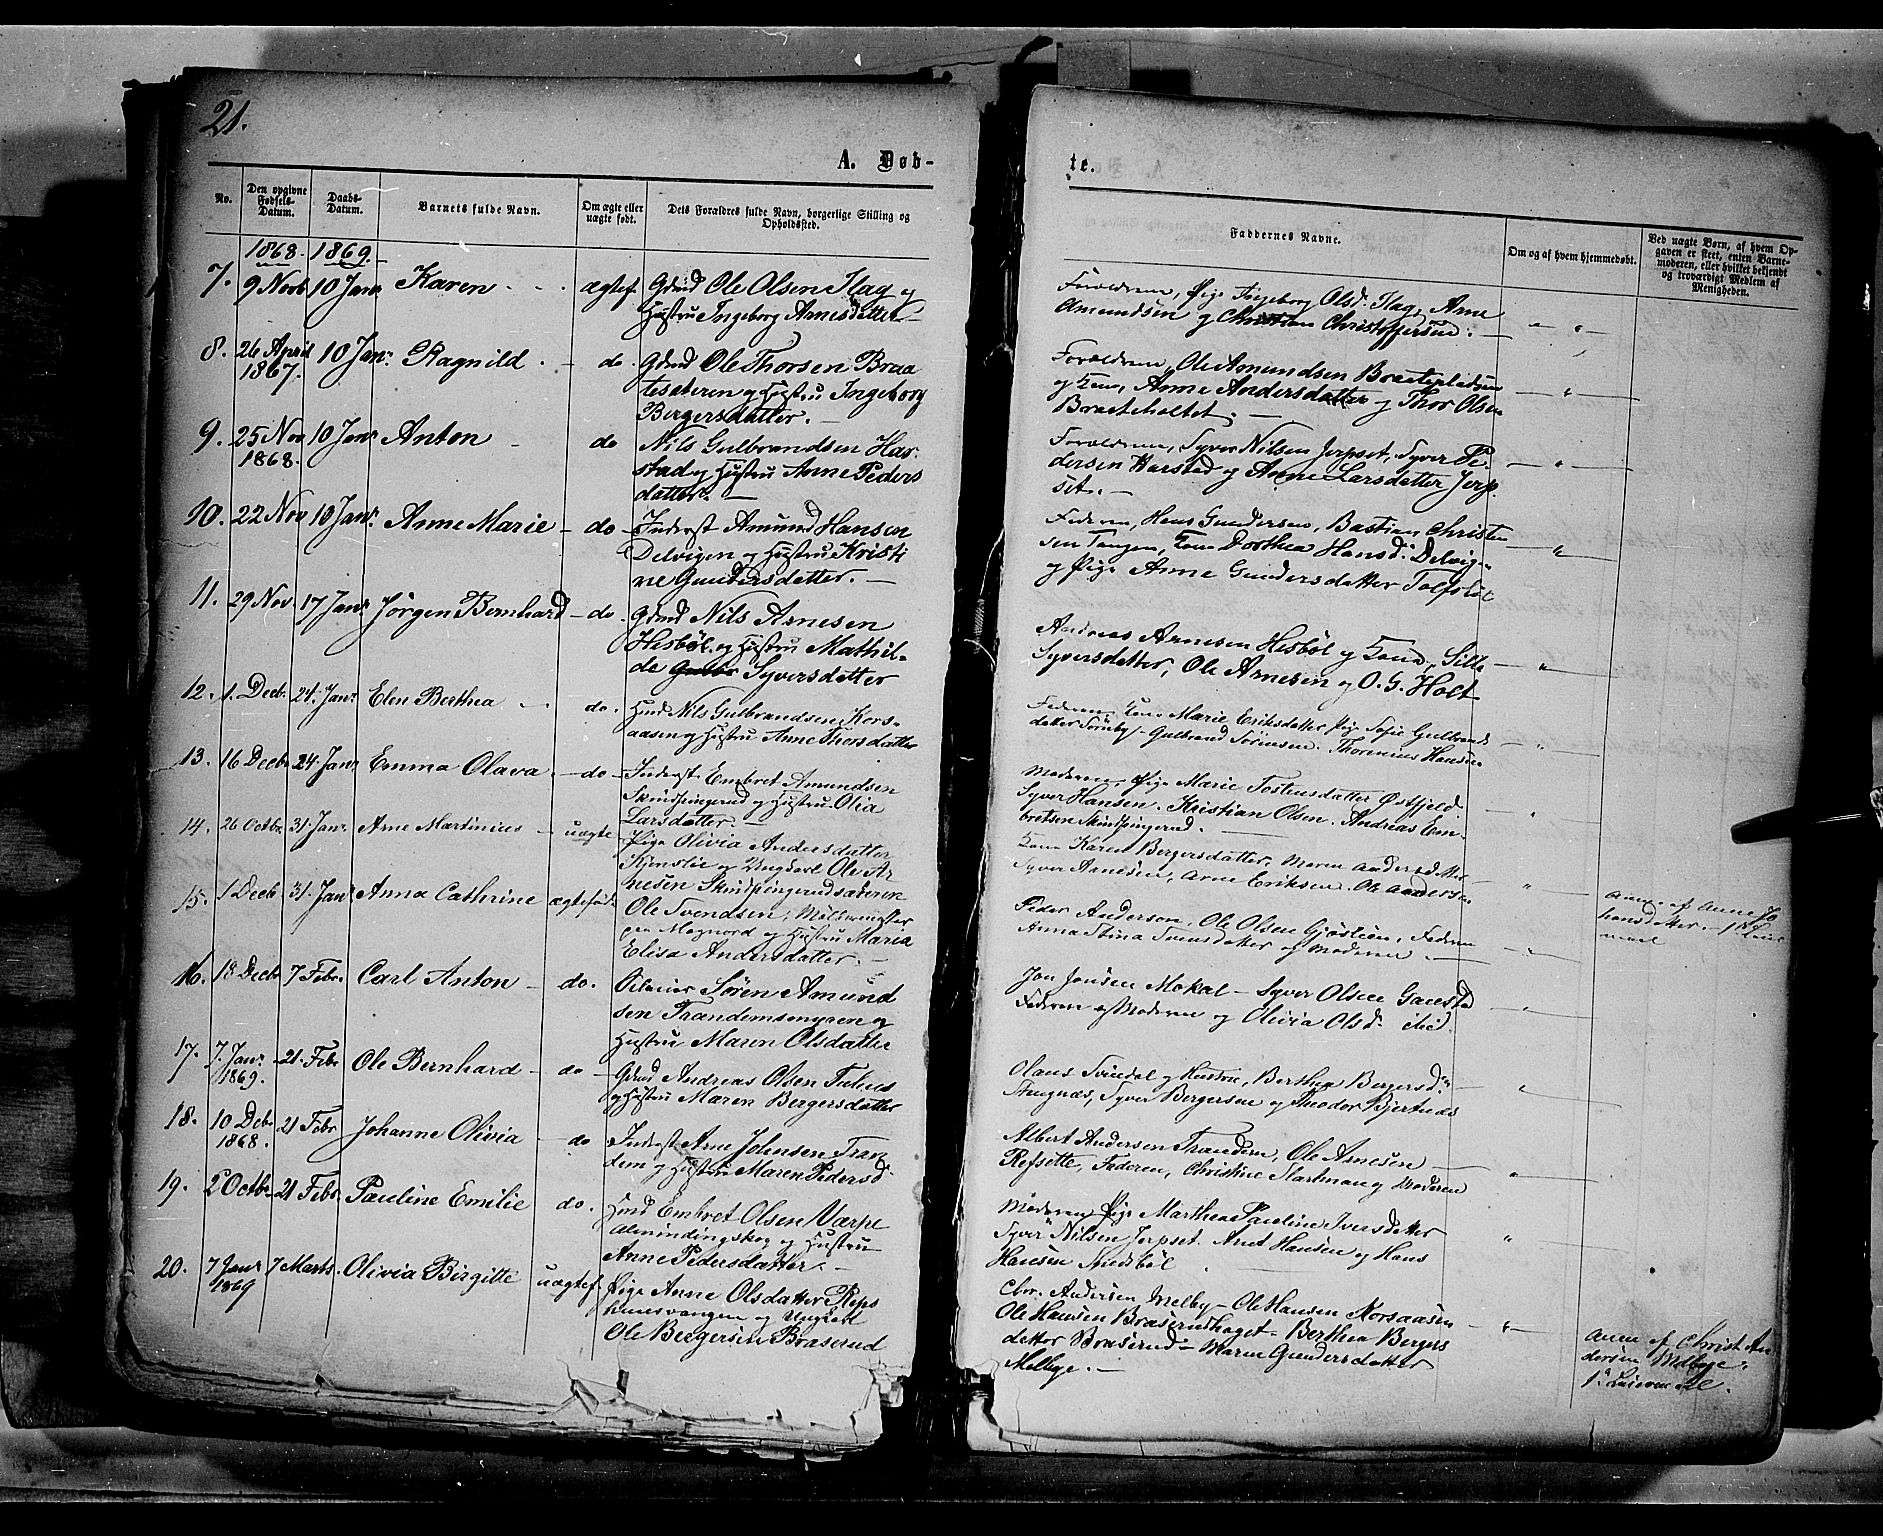 21.
A. Døb-
No.
Den opgivne Fødsels-Datum.
Daabs-Datum.
Barnets fulde Navn.
Om ægte eller uægte født.
Dets Forældres fulde Navn, borgerlige Stilling og Opholdssted.
1868. 1869.
7. 9 Novb 10 Janr Karen ægtef. Gdmd Ole Olsen Flag og
Hustru Ingeborg Arnesdatter
8. 26 April 1867. 10 Janr. Ragnild do Gdmd Ole Thorsen Braa
tesæteren og Hustru Ingeborg
Bergersdatter.
9. 25 Nov 1868. 10 Janr Anton do Nils Gulbrandsen Har-
stad og Hustru Anne Peders
datter.
10. 22 Nov 10 Janr. Anne Marie do Inderst Amund Hansen
Delvigen og Hustru Kristi
ne Gundersdatter.
11. 29 Nov 17 Janr Jørgen Bernhard do. Gdmd Nils Arnesen
Hesbøl og Hustru Mathil-
de Syversdatter
12. 1. Decb. 24. Janr Elen Berthea do. Hmd Nils Gulbrandsen Kors-
aasen og Hustru Anne Thorsdatter
13. 16 Decb 24 Janr Emma Olava do Inderst Embret Amundsen
Skindpingerud og Hustru Olia
Larsdatter
14. 26 Octbr 31 Janr Arne Martinius uægte Pige Olivia Andersdatter
Kjenslie og Ungkarl Ole Ar
nesen Skindpingerudsæteren
15. 1 Decb 31. Janr Anna Cathrine ægtefød. Ole Svendsen, Møllermester
paa Magnord og Hustru Maria
Elisa Andersdatter.
16. 18 Decb 7 Febr. Carl Anton do. Søren Amund
sen Trandemsmyren og
Hustru Maren Olsdatter
17. 7. Janr. 1869. 21. Febr Ole Bernhard do Gdmd Andreas Olsen
og Hustru Maren Bergersdatter
18. 10 Debr 1868. 21 Febr Johanne Olivia do Inderst Arne Johnsen Tran
dem og Hustru Maren Pedersd
19. 2 Octbr 21 Febr Pauline Emilie do. Hmd Embret Olsen Varpe
almindingskog og Hustru
Anne Pedersdatter.
20. 7 Janr 1869 7 Marts. Olivia Birgitte uægtef. Pige Anne Olsdatter Reps
hansvangen og Ungkarl
Ole Bergersen Braserud
te.
Faddernes Navne.
Om og af hvem hjemmedøbt.
Ved uægte Børn, af hvem Opgaven er skeet, enten Barnemoderen, eller hvilket bekjendt og troværdigt Medlem af Menigheden.
Forældrene, Pige Ingeborg Olsd. Flag, Arne
Amundsen og Christian Christoffersen.
Forældrene, Ole Amundsen Braatepladsen
og Kone, Anne Andersdatter og Thor Olsen
Braateholtet.
Forældrene, Syver Nilsen Jerpset, Syver Pe-
dersen Harstad og Anne Larsdatter Jerp-
set.
Faderen, Hans Gundersen, Bastian Christen
sen Tangen, Kone Dorthea Hansd. Delvig-
og Pige Anne Gundersdatter
Andreas Arnesen Hesbøl og Kone,
Syversdatter, Ole Arnesen og O. G. Holt
Faderen, Kone Marie Eriksdatter Pige Sofie Gulbrands
datter Sørnby- Gulbrand Sørensen. Thorenius Hansen
Moderen, Pige Marie Tostensdatter Østfjeld.
Syver Hansen. Kristian Olsen. Andreas Em-
bretsen Skindpingerud.
Kone Karen Bergersdatter, Maren Andersdatter
Syver Arnesen, Arne Eriksen. Ole Andersen
Peder Anderson, Ole Olsen Faderen
Anna Stina Svensdatter og Moderen.
Jon Jonsen Mokal - Syver Olsen Gaustad
Faderen og Moderen og Olivia Olsd. ibid
Olaus Svindal og Hustru, Berthea Bergersd.
Syver Bergersen og Theodor Bjertnæs
Albert Andersen Trandem, Ole Arnesen
Refsette, Faderen, Christine Starkman og Moderen
Moderen Pige Marthea Pauline Iversdatter
Syver Nilsen Jerpset. Amt Hansen og Hans
Hansen
Chr. Andersen Melby- Ole Hansen Korsaasen
Ole Hansen Braserudhaget- Berthea Bergers
datter Braserud- Maren Gundersdatter
Melbye.
Anm. af Anne Jo
hansdatter
Anm. af Christ An
dersen Melbye.